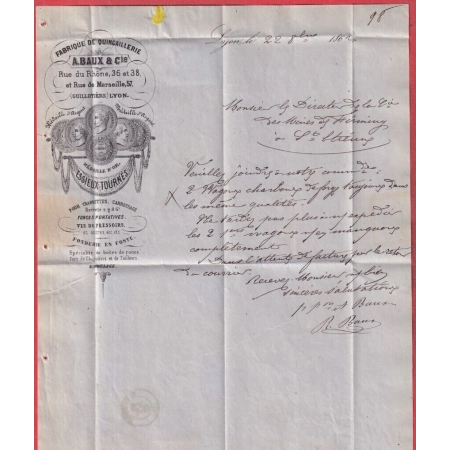 96
FABRIQUE DE QUINCAILLERIE
A. BAUX & Cie
Rue du Rhône, 36 et 38
et Rue de Marseille, 57
(GUILLOTIÈRE) LYON
Médaille d'Argent Médaille d'Argent
MÉDAILLE D'OR
ESSIEUX-TOURNÉS
POUR CHARRETTES, CARROSSAGE
FORGES PORTATIVES
VIS DE PRESSOIRS
FONDERIE EN FONTE
Spécialité de boîtes de roues
Lyon, le 22 8bre
Monsieur le Directeur de la Cie
des Mines de Firminy
à St Etienne
Veuillez joindre à notre commande
2 Wagons charbons de forge toujours dans
les même qualités.
Ne tardez pas plus à nous expédier
les 2 wagons
complètement
Dans l'attente de facture par le retour
du courrier
Recevez Monsieur
sincères salutations
p pon A Baux
R. Baux